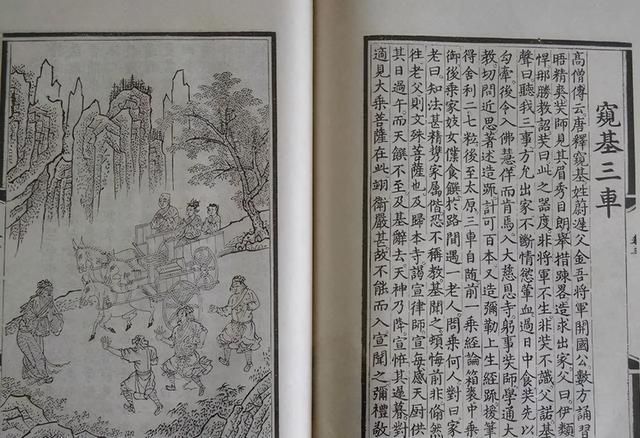 窺基三車
高僧傳云唐釋窺基姓尉遲父金吾將軍開國公數方誦習
晤精爽奘師見其眉秀目朗舉措踈畧造求出家父曰伊類
悍那勝教詔奘曰此之器度非將軍不生非奘不識父諾基
聲曰聽我三事方允出家不斷情慾葷血過日中食奘先以
勾牽後令入佛慧佯而肯焉入大慈恩寺躬事奘師學通大
教切問近思著述造疏計可百本又造彌勒上生經疏援筆
得舍利二七粒後至太原三車自隨前一乘經論箱中乘
御後乘家妓女僕食饌於路間遇一老人問乘何人對曰家
老曰知法甚精攜家屬偕恐不稱教基聞之頓悔前非翛然
往老父則文殊菩薩也及歸本寺謁宣律師宣每感天厨供
其日過午而天饌不至及基辭去天神乃降宣恠其遲暮對
適見大乘菩薩在此翊衛嚴甚故不能而入宣聞之彌禮敬